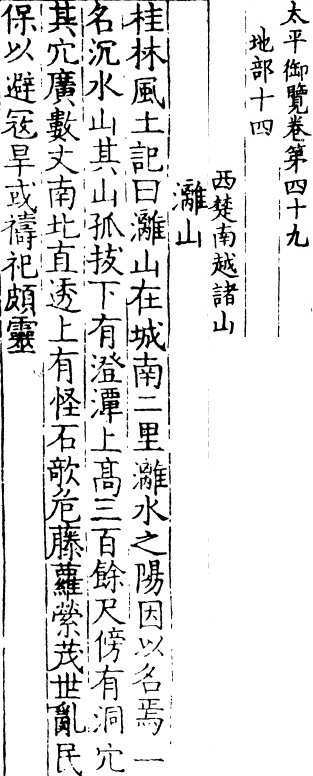 太平御覽卷第四十九
地部十四
西楚南越諸山
灕山
桂林風土記曰灕山在城南二里灕水之陽因以名焉一
名沉水山其山孤拔下有澄潭上高三百餘尺傍有洞穴
其穴廣數丈南北直透上有怪石欹危藤蘿縈茂世亂民
保以避寇旱或禱祀頗靈